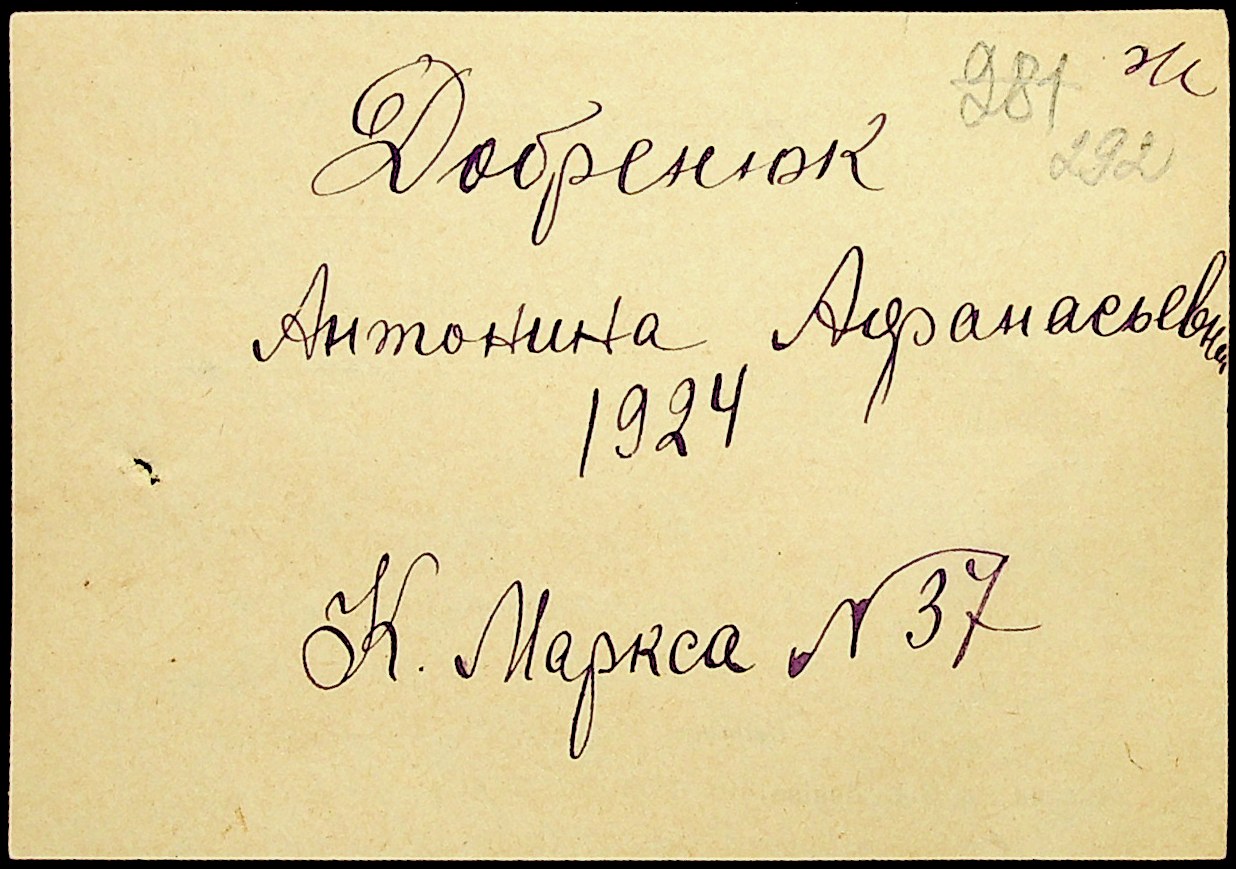 281 ж
292
Добренюк
Антонина Афанасьевна
1924
К. Маркса № 37